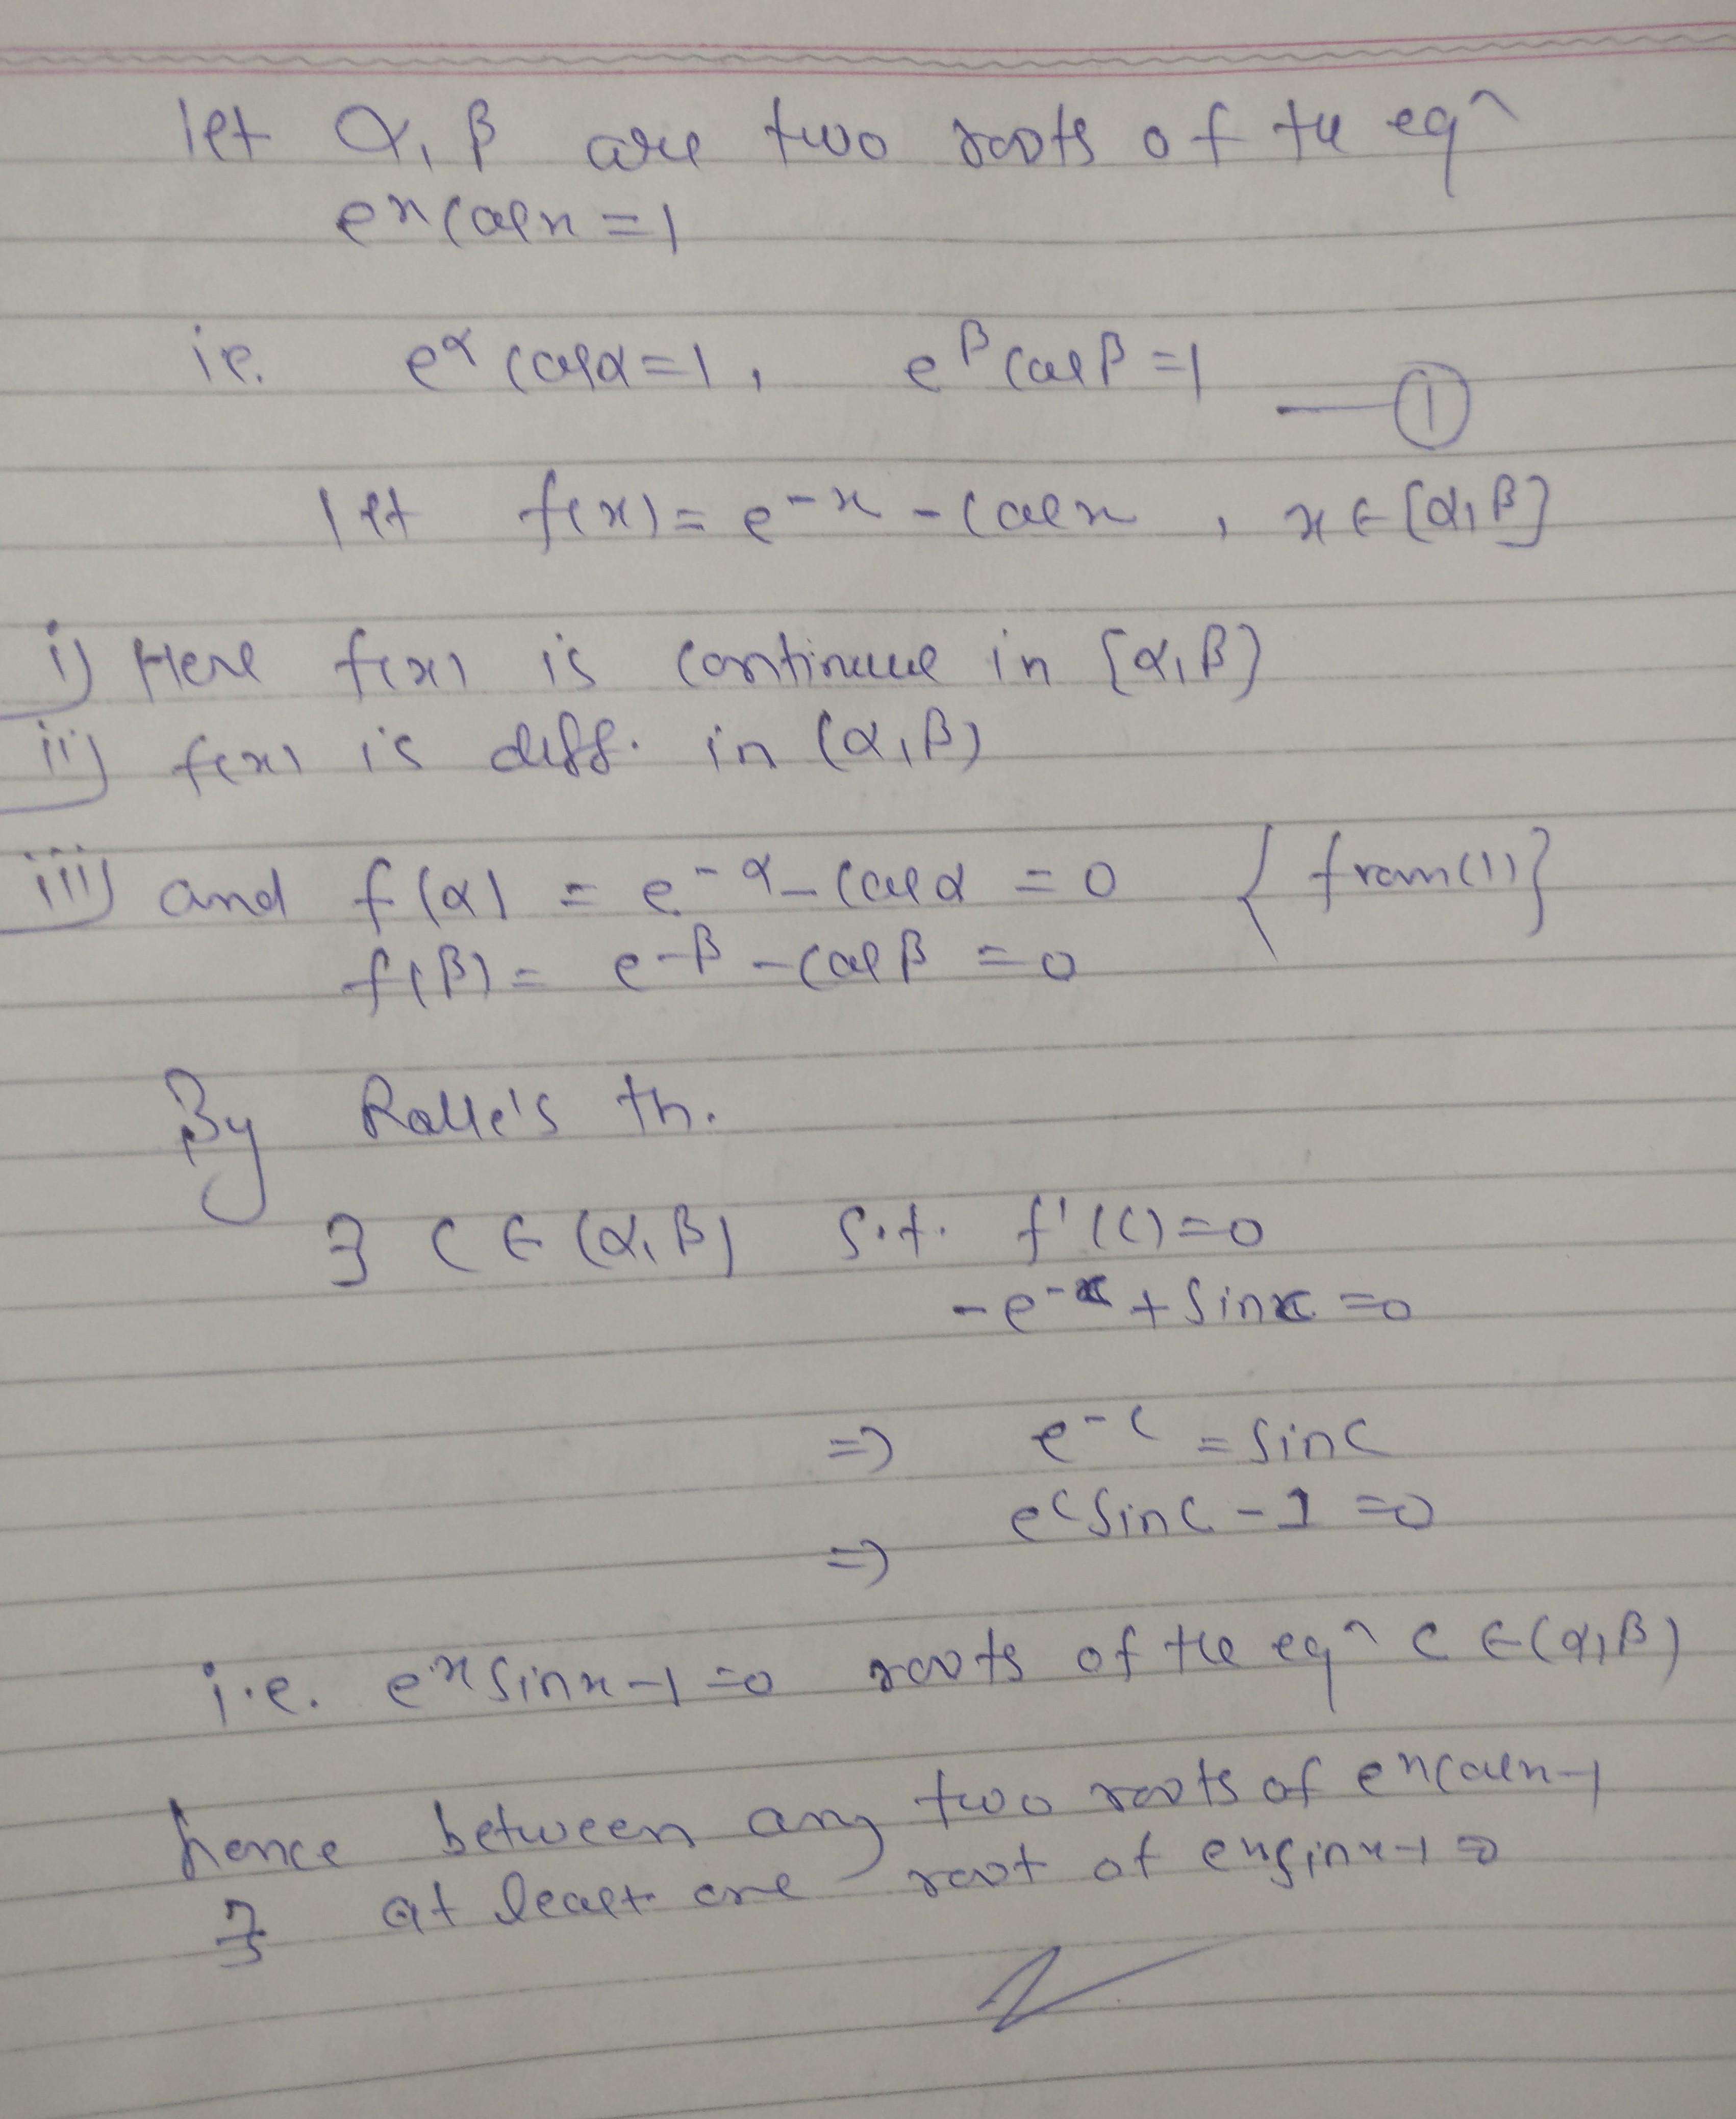 let α, β are two roots of the eqⁿ
eˣ cos x = 1
i.e. e^α cos α = 1, e^β cos β = 1 — ①
let f(x) = e^-x - cos x, x ∈ [α, β]
i) Here f(x) is continuous in [α, β]
ii) f(x) is diff. in (α, β)
iii) and f(α) = e^-α - cos α = 0 { from (1) }
f(β) = e^-β - cos β = 0
By Rolle's th.
∃ c ∈ (α, β) s.t. f'(c) = 0
-e^-c + sin c = 0
⇒ e^-c = sin c
⇒ e^c sin c - 1 = 0
i.e. e^x sin x - 1 = 0 roots of the eqⁿ c ∈ (α, β)
hence between any two roots of e^x cos x - 1
∃ at least one root of e^x sin x - 1 = 0